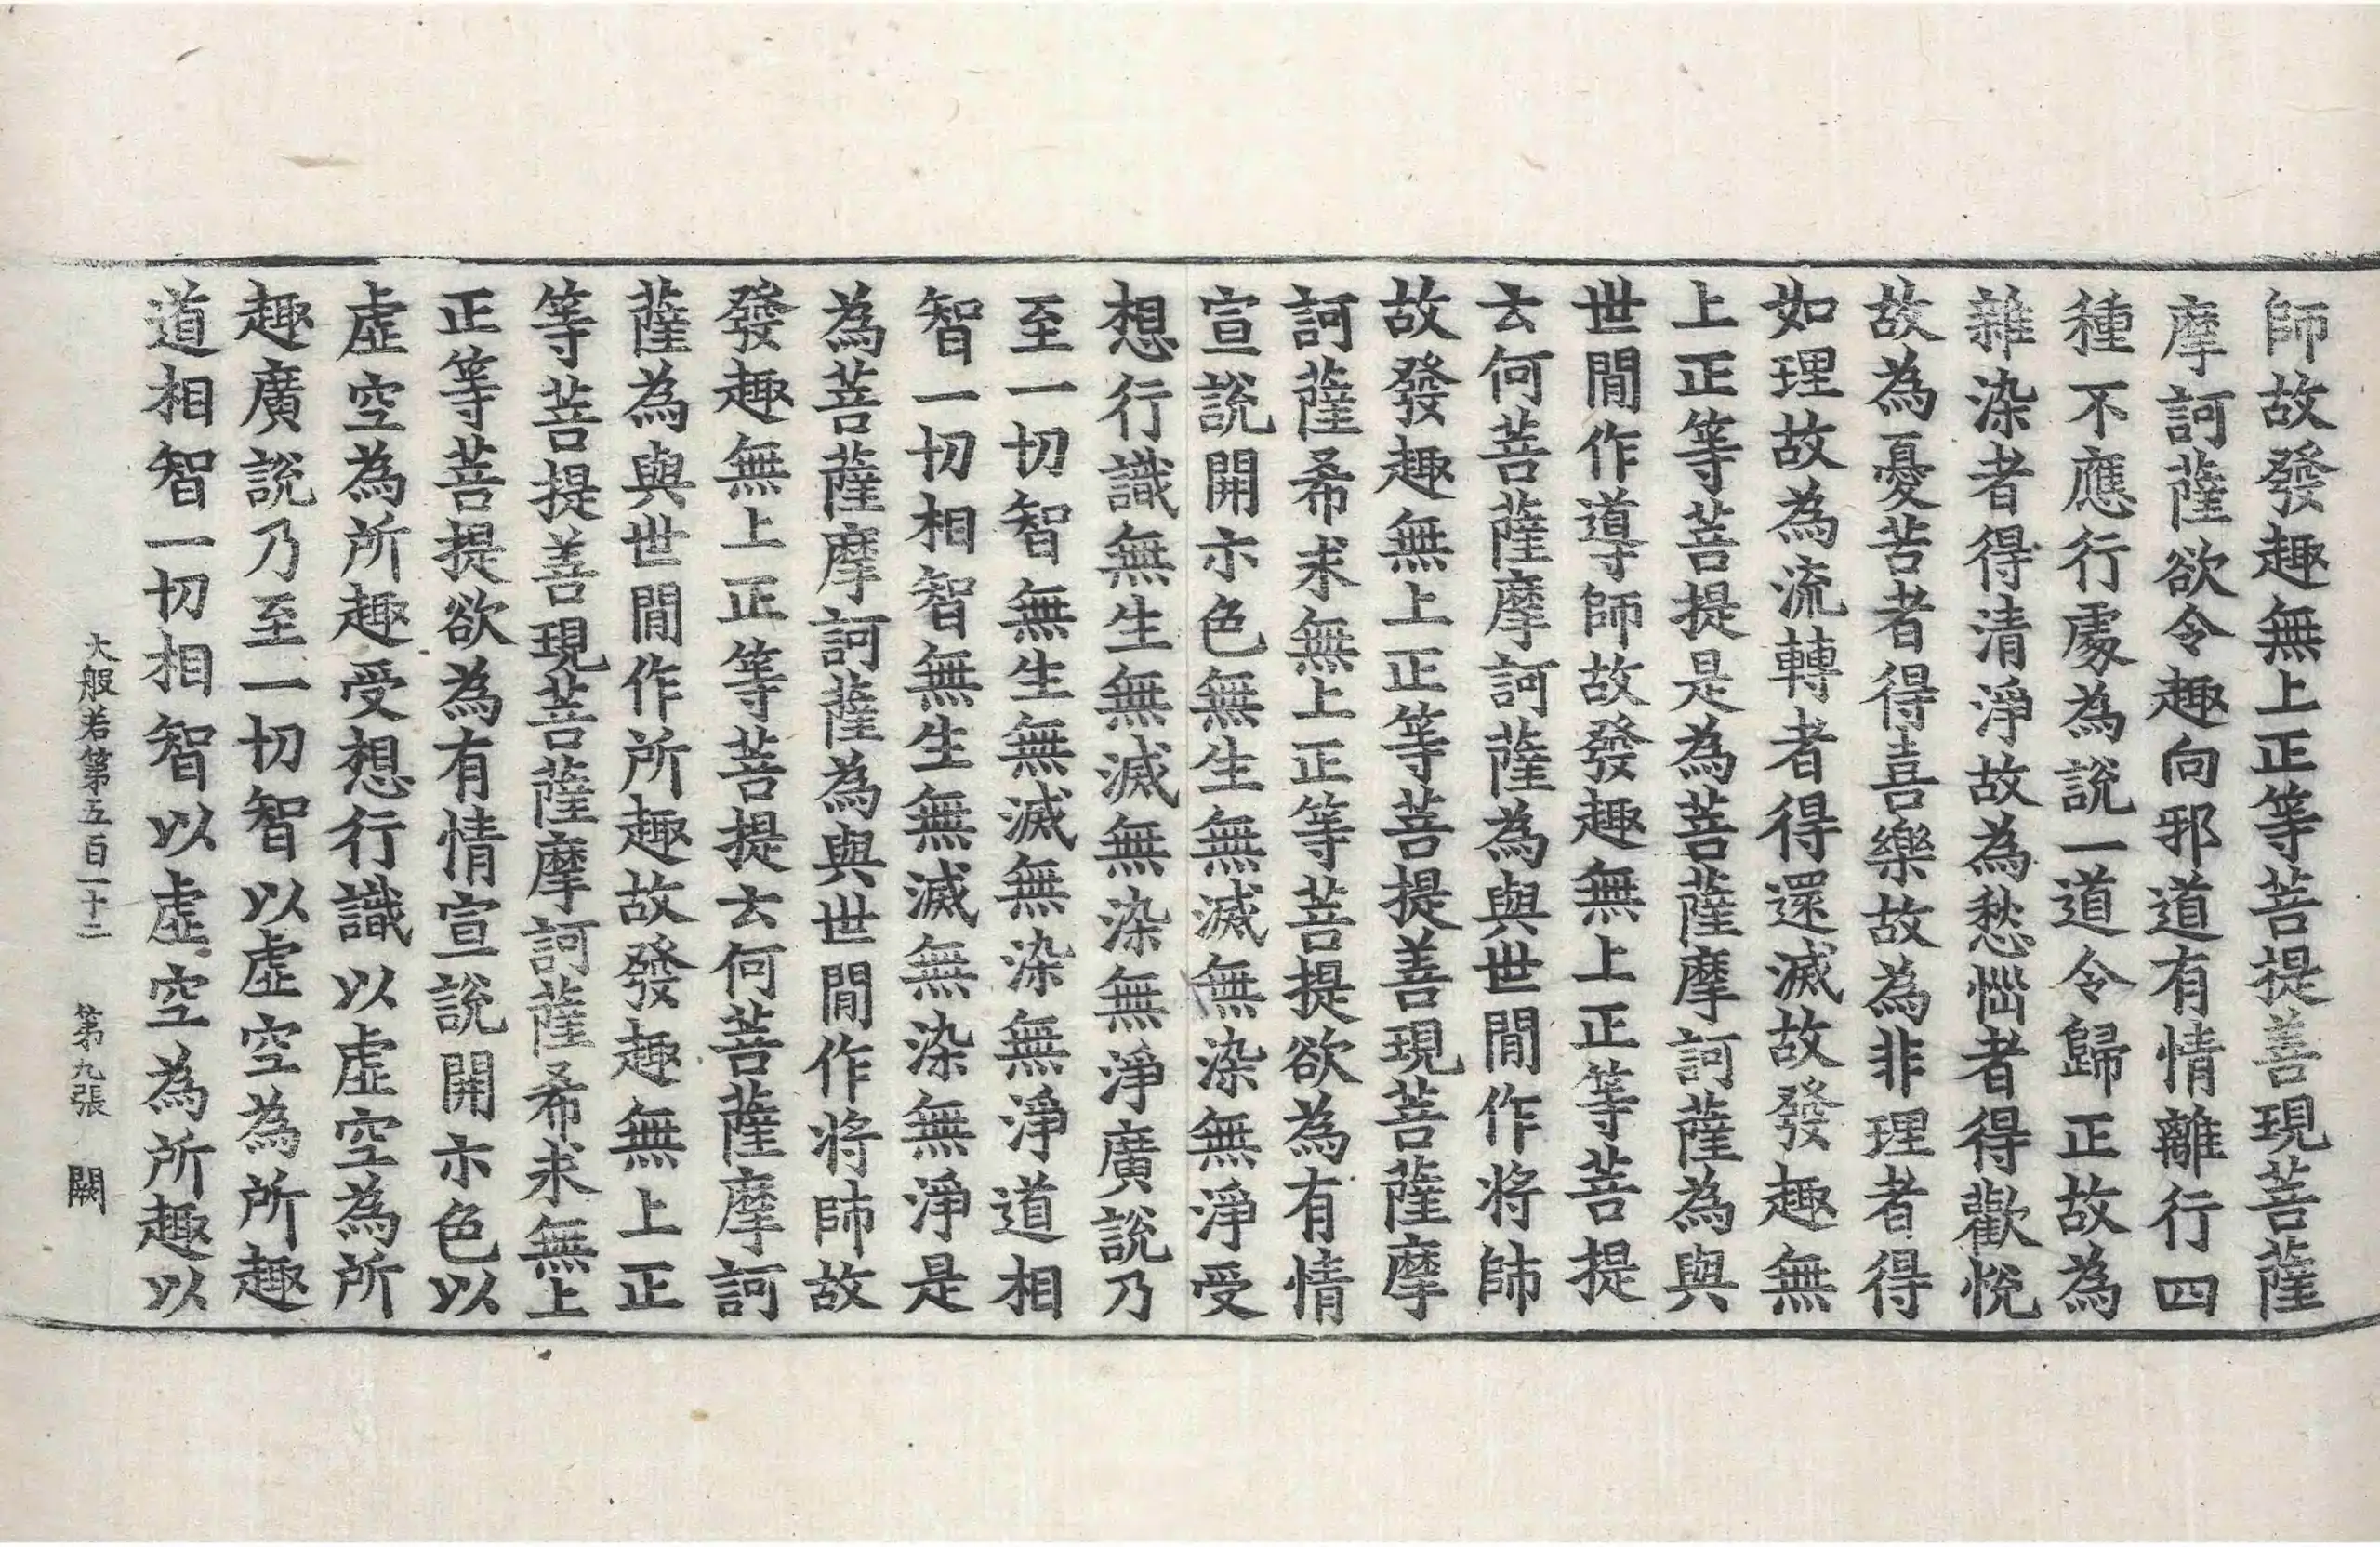 師故發趣無上正等菩提善現菩薩
摩訶薩欲令趣向邪道有情離行四
種不應行處為說一道令歸正故為
雜染者得清淨故為愁惱者得歡悅
故為憂苦者得喜樂故為非理者得
如理故為流轉者得還滅故發趣無
上正等菩提是為菩薩摩訶薩為與
世間作導師故發趣無上正等菩提
云何菩薩摩訶薩為與世間作將帥
故發趣無上正等菩提善現菩薩摩
訶薩希求無上正等菩提欲為有情
宣說開示色無生無滅無染無淨受
想行識無生無滅無染無淨廣說乃
至一切智無生無滅無染無淨道相
智一切相智無生無滅無染無淨是
為菩薩摩訶薩為與世間作將帥故
發趣無上正等菩提云何菩薩摩訶
薩為與世間作所趣故發趣無上正
等菩提善現菩薩摩訶薩希求無上
正等菩提欲為有情宣說開示色以
虛空為所趣受想行識以虛空為所
趣廣說乃至一切智以虛空為所趣
道相智一切相智以虛空為所趣以
大般若第五百一十二 第九張 闕